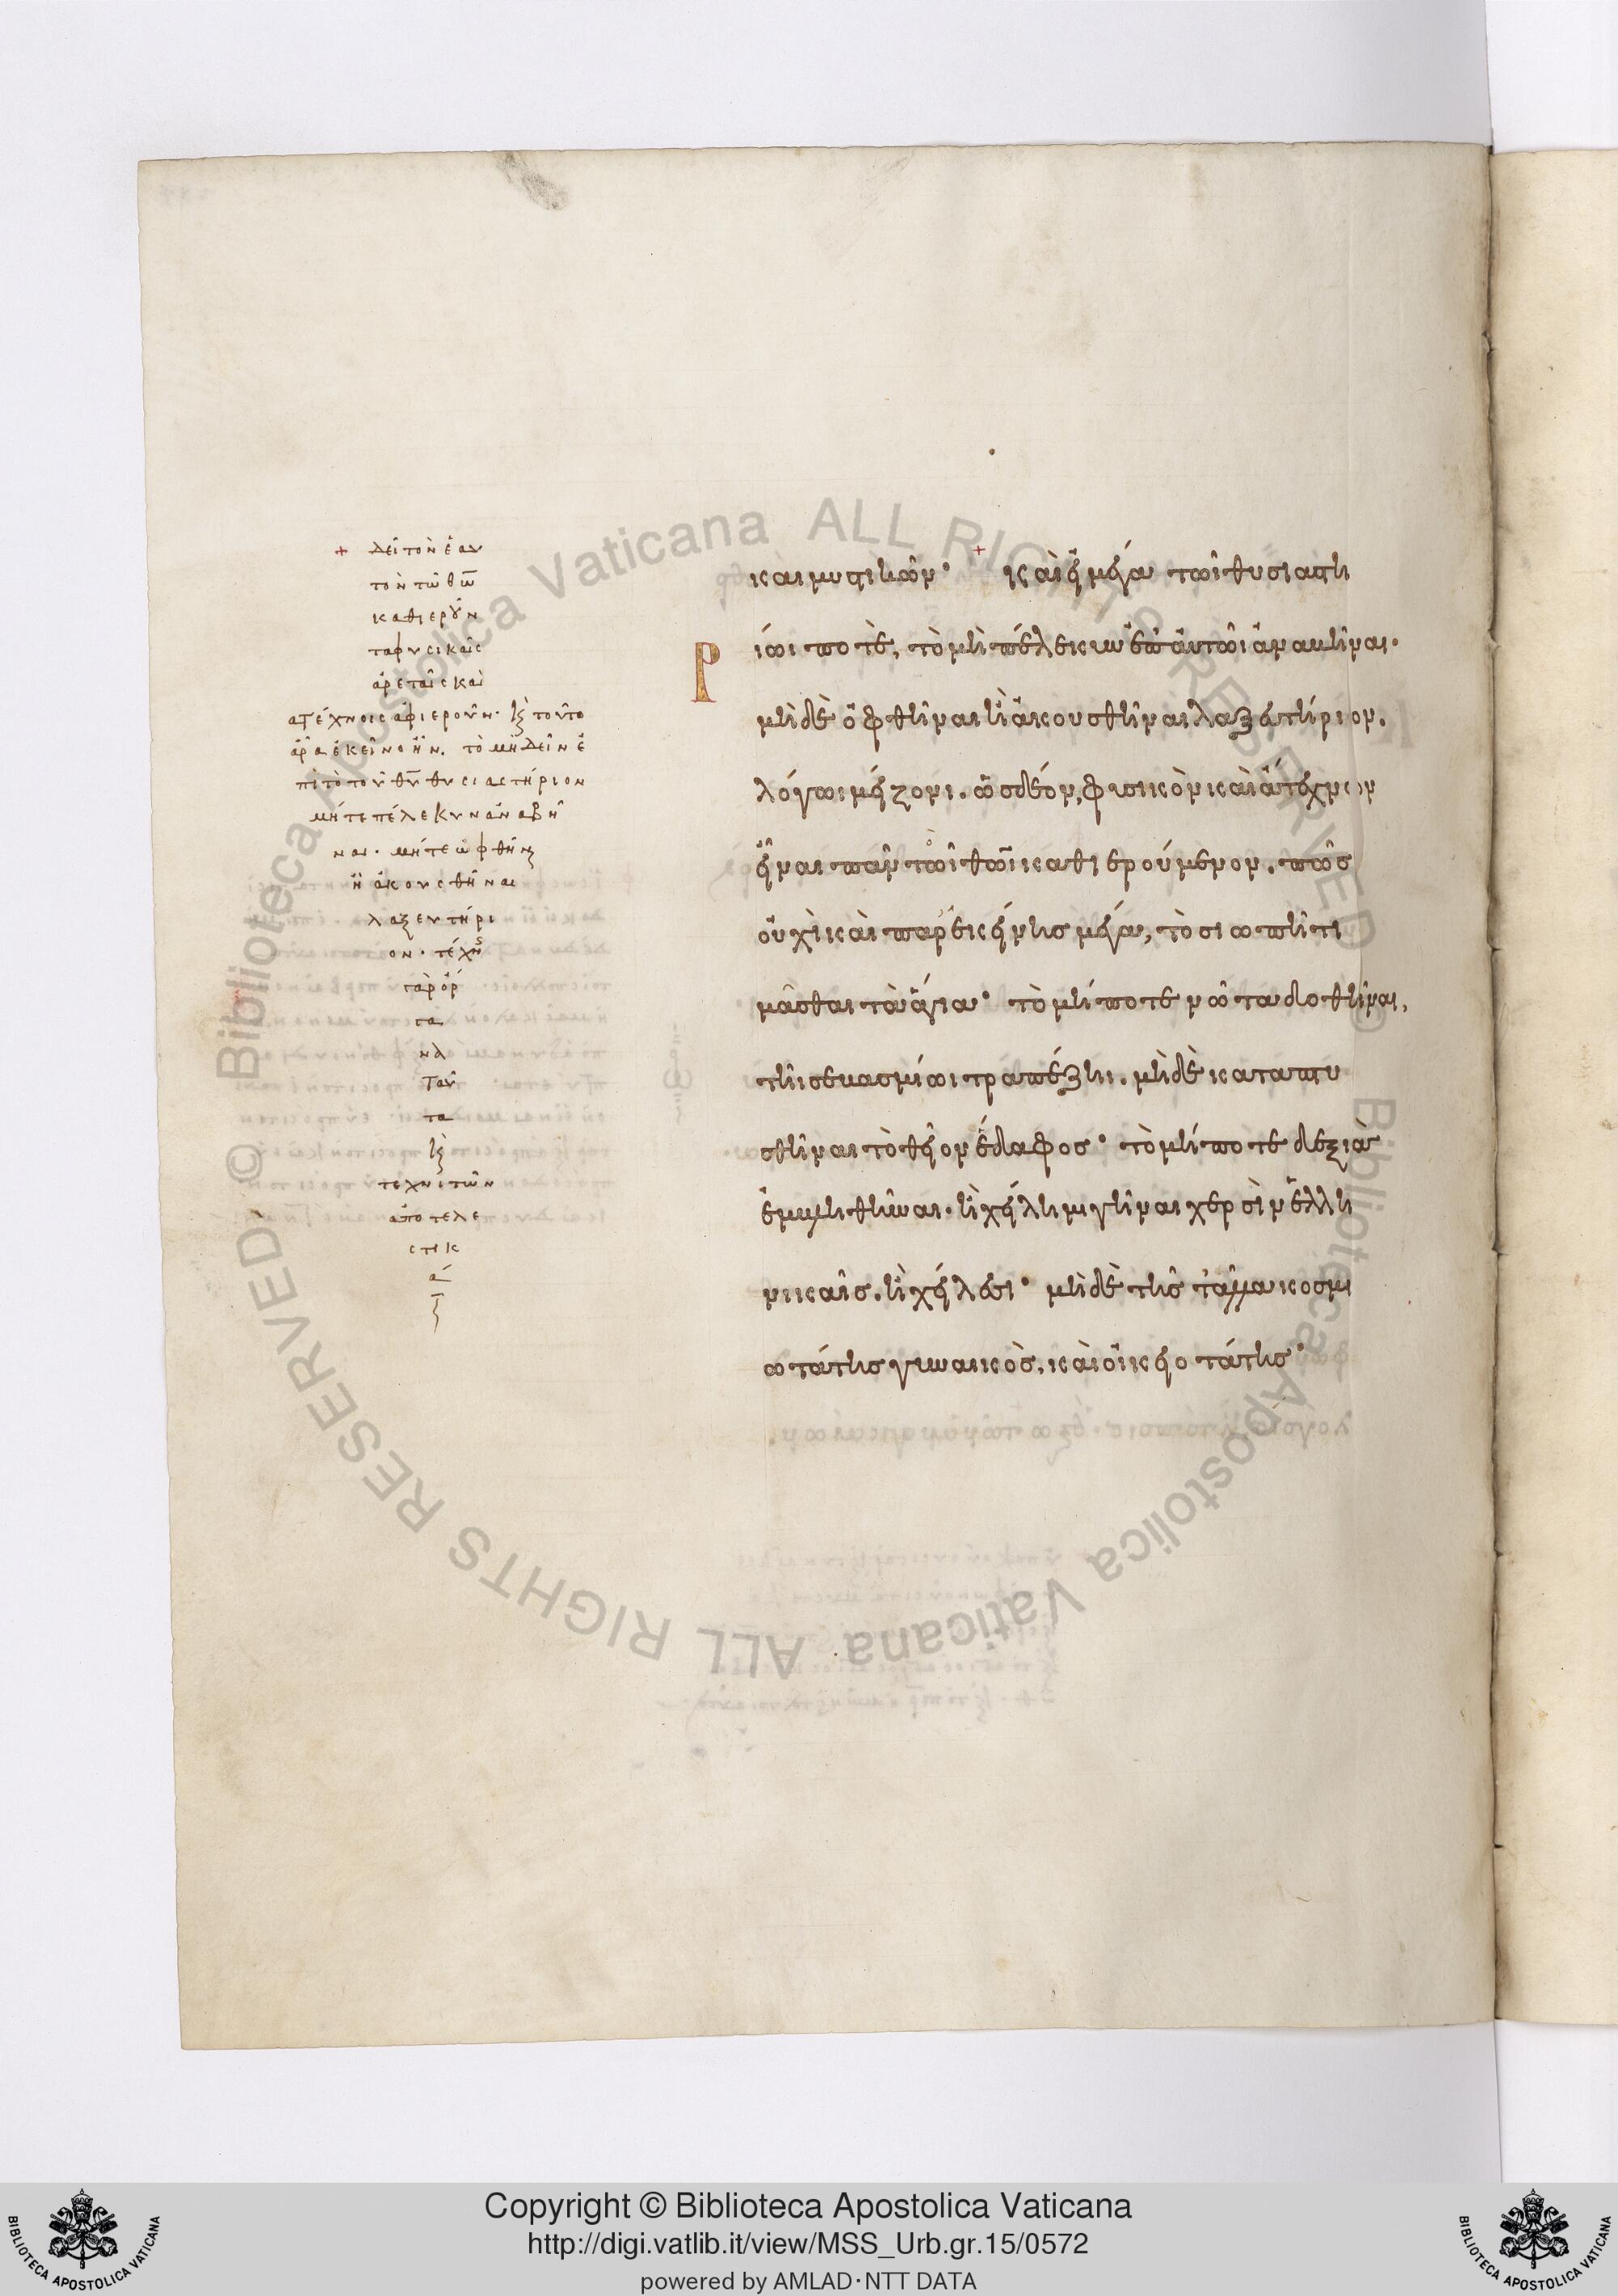 + δεῖ τὸν ἑαυ
τὸν τῶ θω̅
καθιεροῦν
τα φυσικαῖς
ἀρεταῖς καὶ
ἀτέχνοις ἀφιεροῦν· κ τοῦτο
ἄρα ἐκεῖνο ἦν. τὸ μὴ δεῖν ἐ
πὶ τὸ τοῦ θυ̅ θυσιαστήριον
μήτε πέλεκυν ἀναβῆ
ναι· μήτε ὠφθῆναι
ἢ ἀκουσθῆναι
λαξευτήρι
ον· τέχνης
γὰρ ὄρ
γα
ταῦ
τα
κ
τεχνιτῶν
ἀποτελε
στικ
ά
καὶ μυστικῶν· + καὶ εἰ μέγα τῶι θυσιαστη
ρίωι ποτὲ, τὸ μὴ πέλεκυν ἐπ' αὐτῶι ἀναβῆναι·
μηδὲ ὀφθῆναι ἢ ἀκουσθῆναι λαξευτήριον,
λόγωι μείζονι. ὡς δέον, φυσικὸν καὶ ἄτεχνον
εἶναι πᾶν τὸ τῶι θῶι καθιερούμενον. πῶς
οὐχὶ καὶ παρ' ἐκείνης μέγα, τὸ σιωπῆι τι
μᾶσθαι τὰ ἅγια· τὸ μήποτε νῶτα δοθῆναι,
τῆι σεβασμίωι τραπέζηι. μηδὲ καταπτυ
σθῆναι τὸ θεῖον ἔδαφος· τὸ μήποτε δεξιὰν
ἐμβληθῆναι. ἢ χείλη μιγῆναι χερσὶν ἑλλη
νικαῖς. ἢ χείλεσι· μηδὲ τῆς τἄλλα κοσμι
ωτάτης γυναικὸς, καὶ οἰκειοτάτης·
Copyright © Biblioteca Apostolica Vaticana
http://digi.vatlib.it/view/MSS_Urb.gr.15/0572
powered by AMLAD·NTT DATA
BIBLIOTECA APOSTOLICA VATICANA
BIBLIOTECA APOSTOLICA VATICANA
© Biblioteca Apostolica Vaticana ALL RIGHTS RESERVED
© Biblioteca Apostolica Vaticana ALL RIGHTS RESERVED